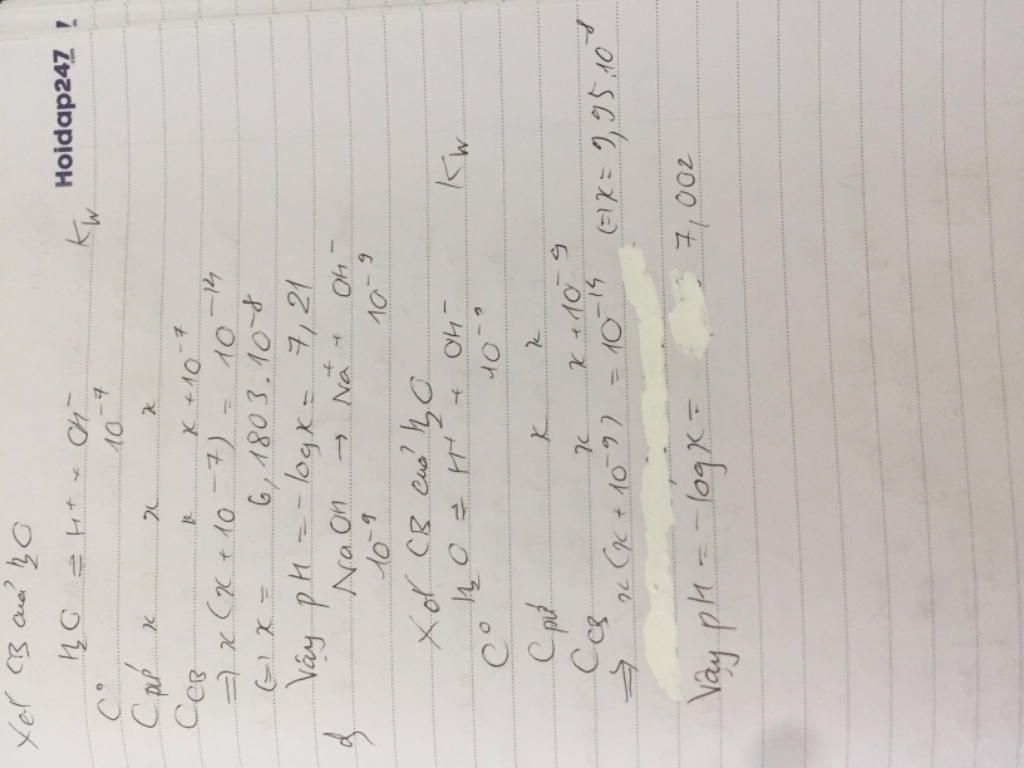 Hoidap247 .com
Xét CB của H₂O
H₂O ⇌ H⁺ + OH⁻ Kw
C° 10⁻⁷
Cpứ x x x
CCB x x + 10⁻⁷
⇒ x(x + 10⁻⁷) = 10⁻¹⁴
⇔ x = 6,1803.10⁻⁸
Vậy pH = -logx = 7,21
NaOH → Na⁺ + OH⁻
10⁻⁹ 10⁻⁹
Xét CB của H₂O
H₂O ⇌ H⁺ + OH⁻ Kw
C° 10⁻⁹
Cpứ x x
CCB x x + 10⁻⁹
⇒ x(x + 10⁻⁹) = 10⁻¹⁴ ⇔ x = 9,95.10⁻⁸
Vậy pH = -logx = 7,002